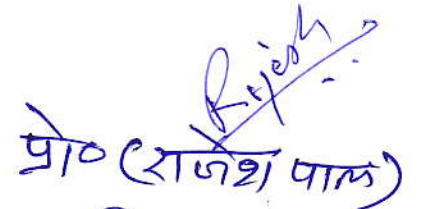 Rajesh
प्रो० (राजेश पाल)